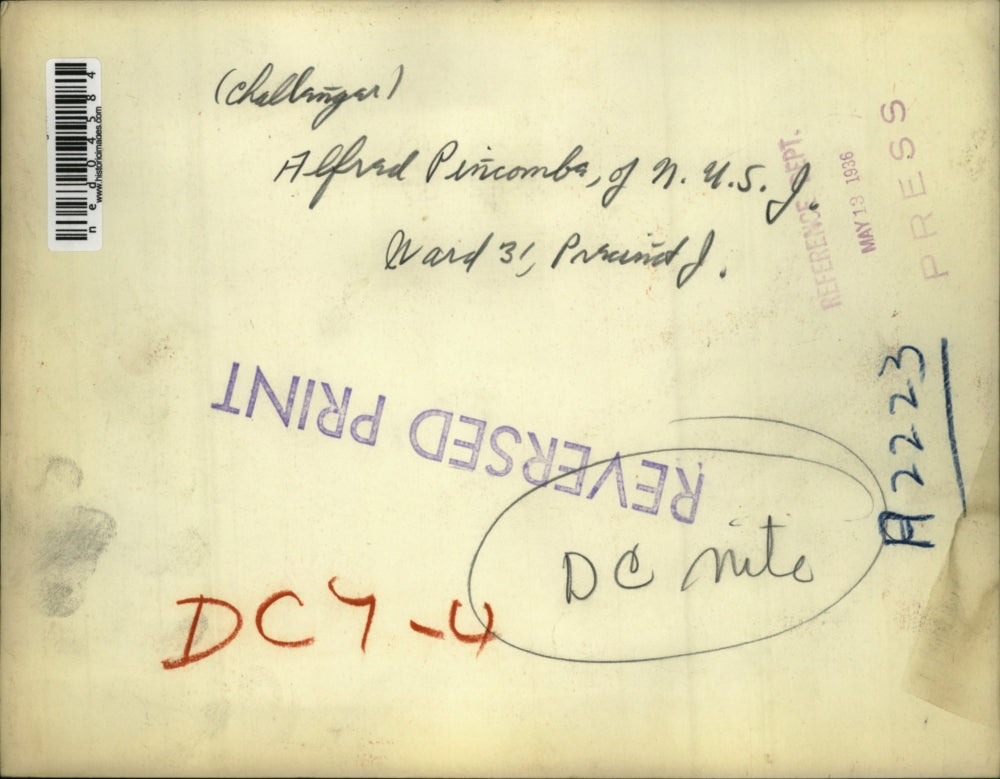 (Challenger)
Alfred Pincombe, of N. U. S. J.
Ward 31, Precinct J.
REFERENCE DEPT.
MAY 13 1936
PRESS
A2223
REVERSED PRINT
DC nite
DC Y-4
ned04584
www.historicimages.com